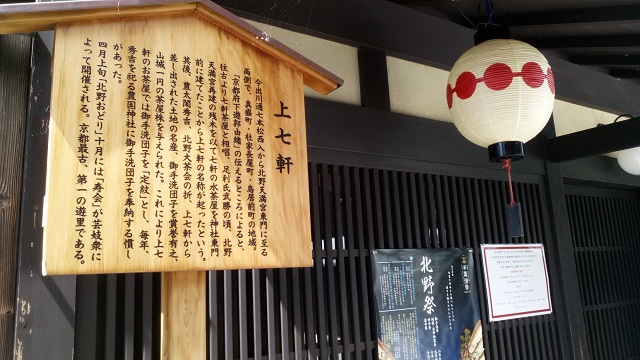 上七軒
今出川通七本松西入から北野天満宮東門に至る
両側で、真盛町・社家長屋町・鳥居前町の地域。
「京都府下遊郭由緒」の伝えるところによると、
往古より七軒茶屋と相唱、足利氏武勝の頃、北野
天満宮再建の残木を以て七軒の水茶屋を神社東門
前に建てたことから上七軒の名称が起ったという。
其後、豊太閤秀吉、北野大茶会の折、上七軒から
差し出された土地の名産、御手洗団子を賞誉有之、
山城一円の茶屋株を与えられた。これにより上七
軒のお茶屋では御手洗団子を「定紋」とし、毎年、
秀吉を祀る豊国神社に御手洗団子を奉納する慣し
があった。
四月上旬「北野おどり」十月には「寿会」が芸妓衆に
よって開催される。京都最古、第一の遊里である。
北野祭